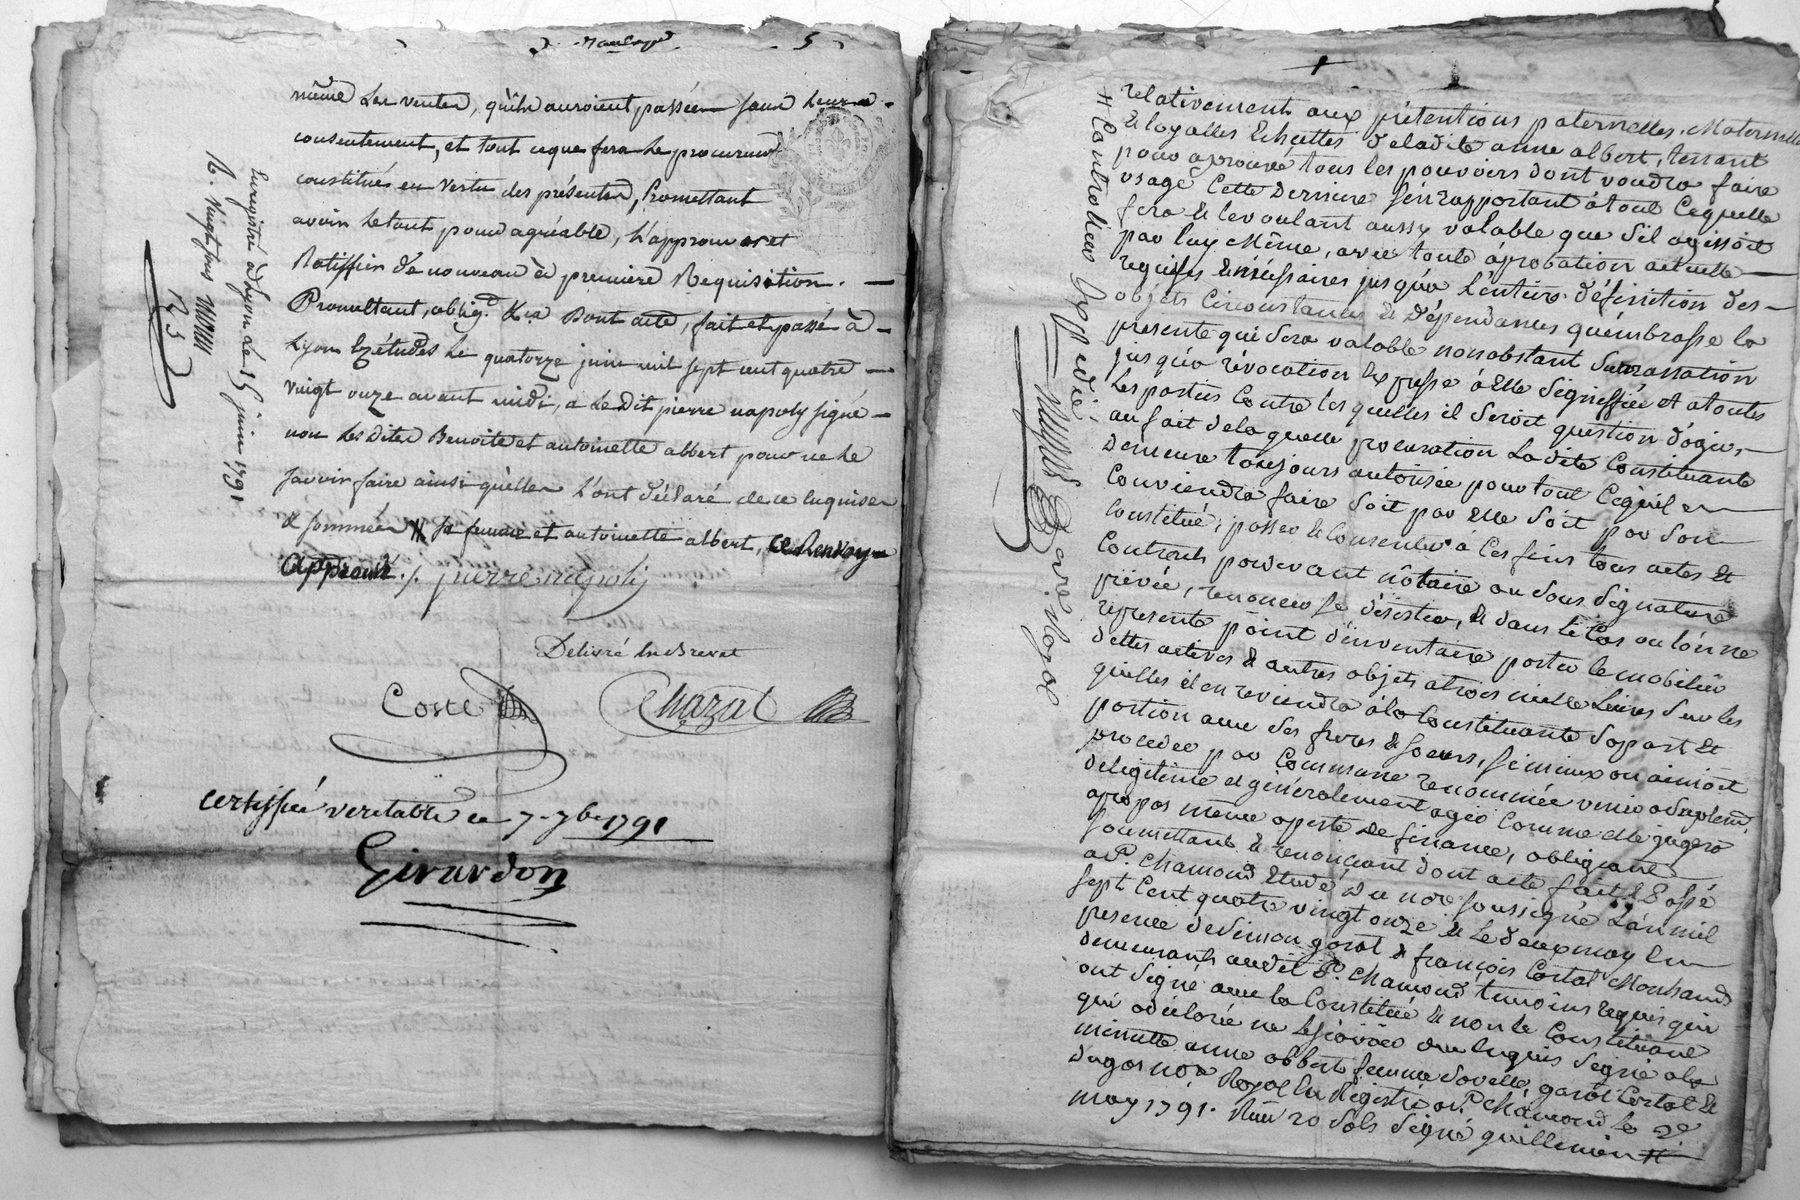 5
même les ventes, qu'ils auroient passées sans leur
consentement, et tout ceque fera le procureur
constitués en vertu des présentes, Promettant
avoir le tout pour agréable, l'approuver et
Ratiffier de nouveau à premiere Requisition. —
Promettant, oblig. Dont acte, fait et passé à —
Lyon Ez études le quatorze juin mil sept cent quatre —
vingt onze avant midi, a Le Dit pierre napoly signé —
non les dites Benoite et antoinette albert pour ne le
savoir faire ainsi qu'elles l'ont déclaré de ce enquises
& sommées # sa femme et antoinette albert, ce Renvoy
Approuvé ./. pierre napoly
Delivré En Brevet
Coste Chazal
certiffié veritable ce 7. 7bre 1791
Girardon
Enregistré à Lyon Le 15 juin 1791
R. Vingt sous
relativement aux prétentions paternelles, Maternelles
& loyalles Echuttes de ladite anne albert, tenant
pour aprouvé tous les pouvoirs dont voudra faire
usage Cette Derniere s'en rapportant à tout Cequelle
fera & le voulant aussy valable que s'il agissoit
par luy Même, avec toute aprobation actuelle —
requises & nécéssaires jusqu'a l'entiere définition des —
objets Circonstances & Dépendances qu'embrasse la
presente qui sera valable nonobstant Surannation
jusqu'a révocation Expresse à Elle Signiffiée et a toutes
Les parties Contre les quelles il seroit question d'agir, —
au fait de laquelle procuration Ladite Constituante
Demeure toujours autorisée pour tout Cequil en
Conviendra faire Soit par Elle Soit par Son
Constitué; passer & Consentir à Ces fins tous actes &
Contrats pardevant nôtaire ou sous Signature
privée, renoncer se désister, & dans le Cas ou lon ne
represente point d'inventaire porter le mobilier
dettes actives & autres objets a trois mille Livres Sur les
quelles il en reviendra à la Constituante Sa part &
portion avec Ses freres & soeurs, si mieux on aimoit
proceder par Commune renommée
delegitime et generalement agir Comme elle jugera
apropos même a perte de finance, obligeant
soumettant & renonçant dont acte fait & Passé
a St. Chamond Etude du nore. soussigné L'an mil
sept Cent quatre vingt onze & Le deux may En
presence de Simon garat & françois Cortal Marchands
demeurants audit St. Chamond temoins requis qui
ont Signé avec le Constitué & non la Constituante
qui a déclaré ne le sçavoir de ce Enquis Signé a la
minutte anne albert femme Dovelle, garat Cortal &
Dugas nore. Royal En Registré a St. Chamond le 2e
may 1791. Reçu 20 Sols Signé guillemin #
# Controlleur Expedié